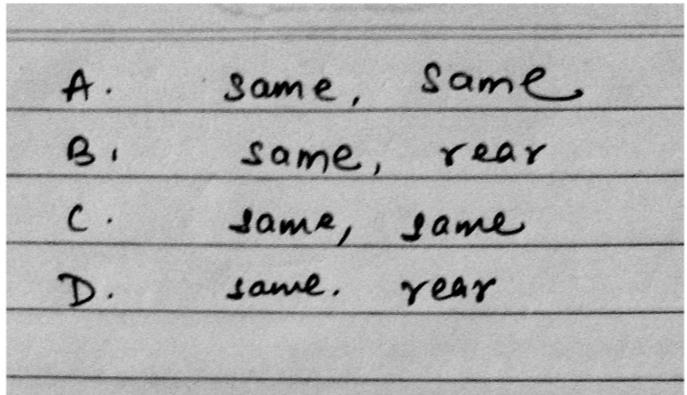 A. same, same
B. same, rear
C. same, same
D. same. rear